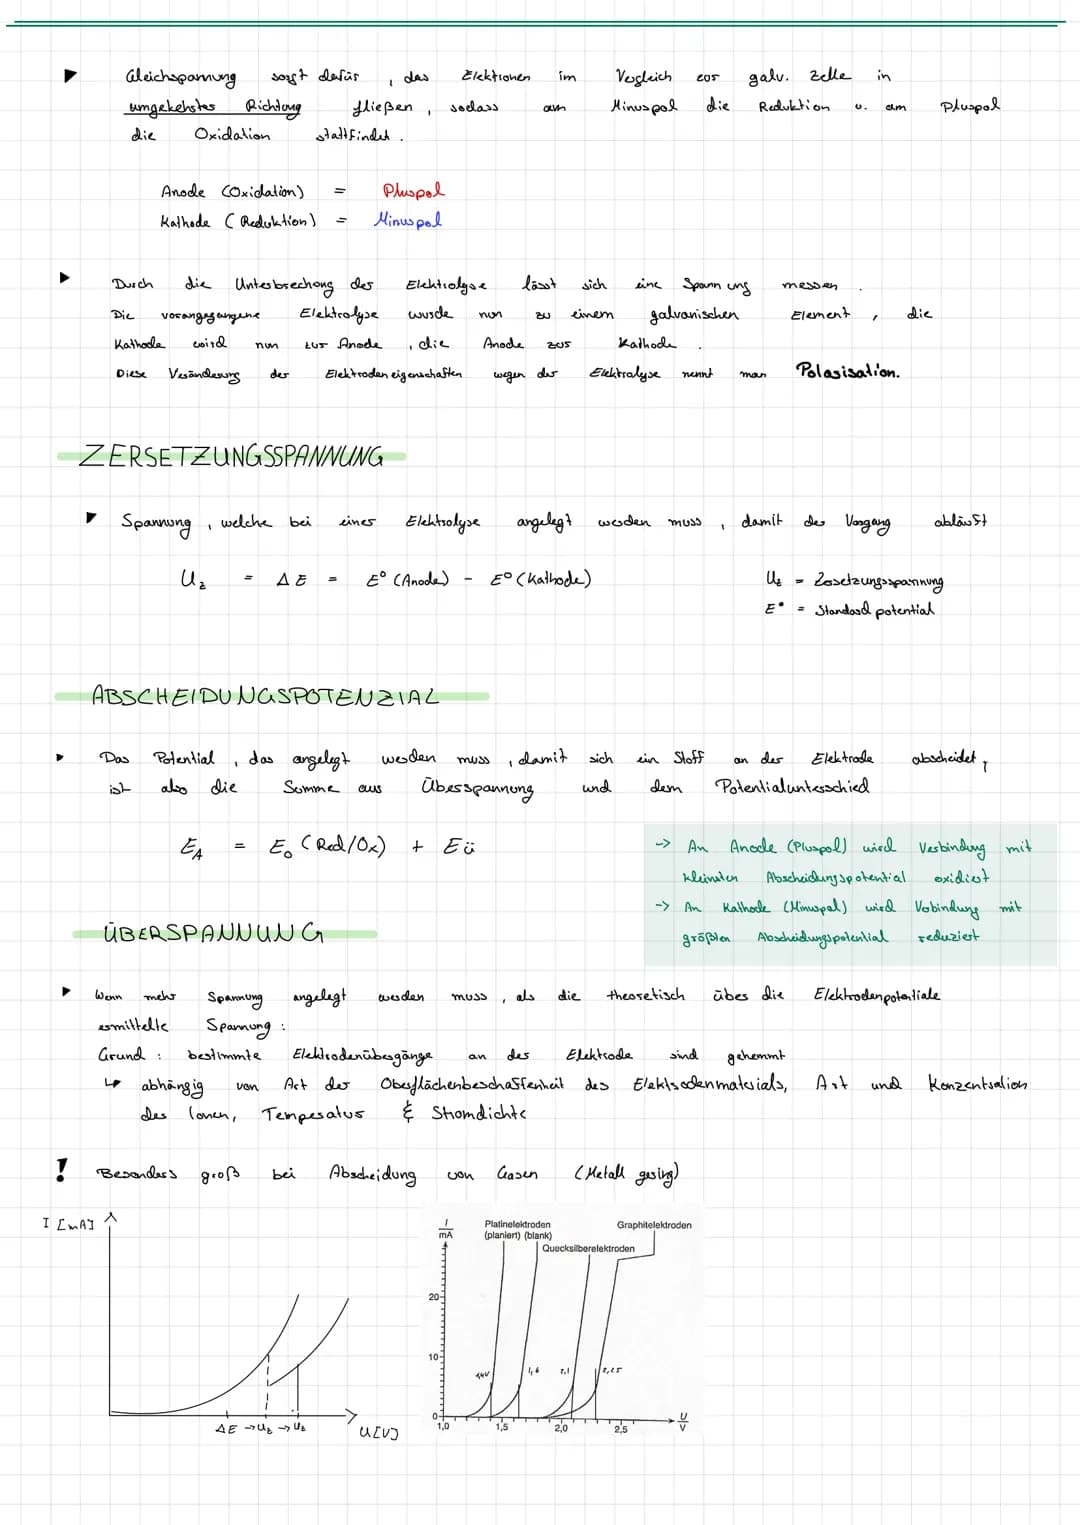 Gleichspannung sorgt dafür, das Elektronen im Vergleich zur galv. Zelle in
umgekehrter Richtung fließen, sodass am Minuspol die Reduktion u. am Pluspol
die Oxidation stattfindet.
Anode (Oxidation) = Pluspol
Kathode (Reduktion) = Minuspol
Durch die Unterbrechung der Elektrolyse lässt sich eine Spannung messen.
Die vorangegangene Elektrolyse wurde nun zu einem galvanischen Element, die
Kathode wird nun zur Anode, die Anode zur Kathode.
Diese Veränderung der Elektrodeneigenschaften wegen der Elektrolyse nennt man Polarisation.
ZERSETZUNGSSPANNUNG
Spannung, welche bei einer Elektrolyse angelegt werden muss, damit der Vorgang abläuft
Uz = ΔE = E° (Anode) - E° (Kathode)
Uz = Zersetzungsspannung
E° = Standard potential
ABSCHEIDUNGSPOTENZIAL
Das Potential, das angelegt werden muss, damit sich ein Stoff an der Elektrode abscheidet,
ist also die Summe aus Überspannung und dem Potentialunterschied
E_A = E₀ (Red/Ox) + Eü
-> An Anode (Pluspol) wird Verbindung mit
kleinsten Abscheidungspotential oxidiert
-> An Kathode (Minuspol) wird Verbindung mit
größten Abscheidungspotential reduziert
ÜBERSPANNUNG
Wenn mehr Spannung angelegt werden muss, als die theoretisch über die Elektrodenpotentiale
ermittelte Spannung:
Grund: bestimmte Elektrodenübergänge an der Elektrode sind gehemmt
↳ abhängig von Art der Oberflächenbeschaffenheit des Elektrodenmaterials, Art und Konzentration
der Ionen, Temperatur & Stromdichte
! Besonders groß bei Abscheidung von Gasen (Metall gering)
I [mA]
ΔE → Uz → Uz
U[V]
I
mA
Platinelektroden
(planiert) (blank)
Graphitelektroden
Quecksilberelektroden
20
10
0
1,4V
1,6
2,1
2,25
1,0
1,5
2,0
2,5
U
V